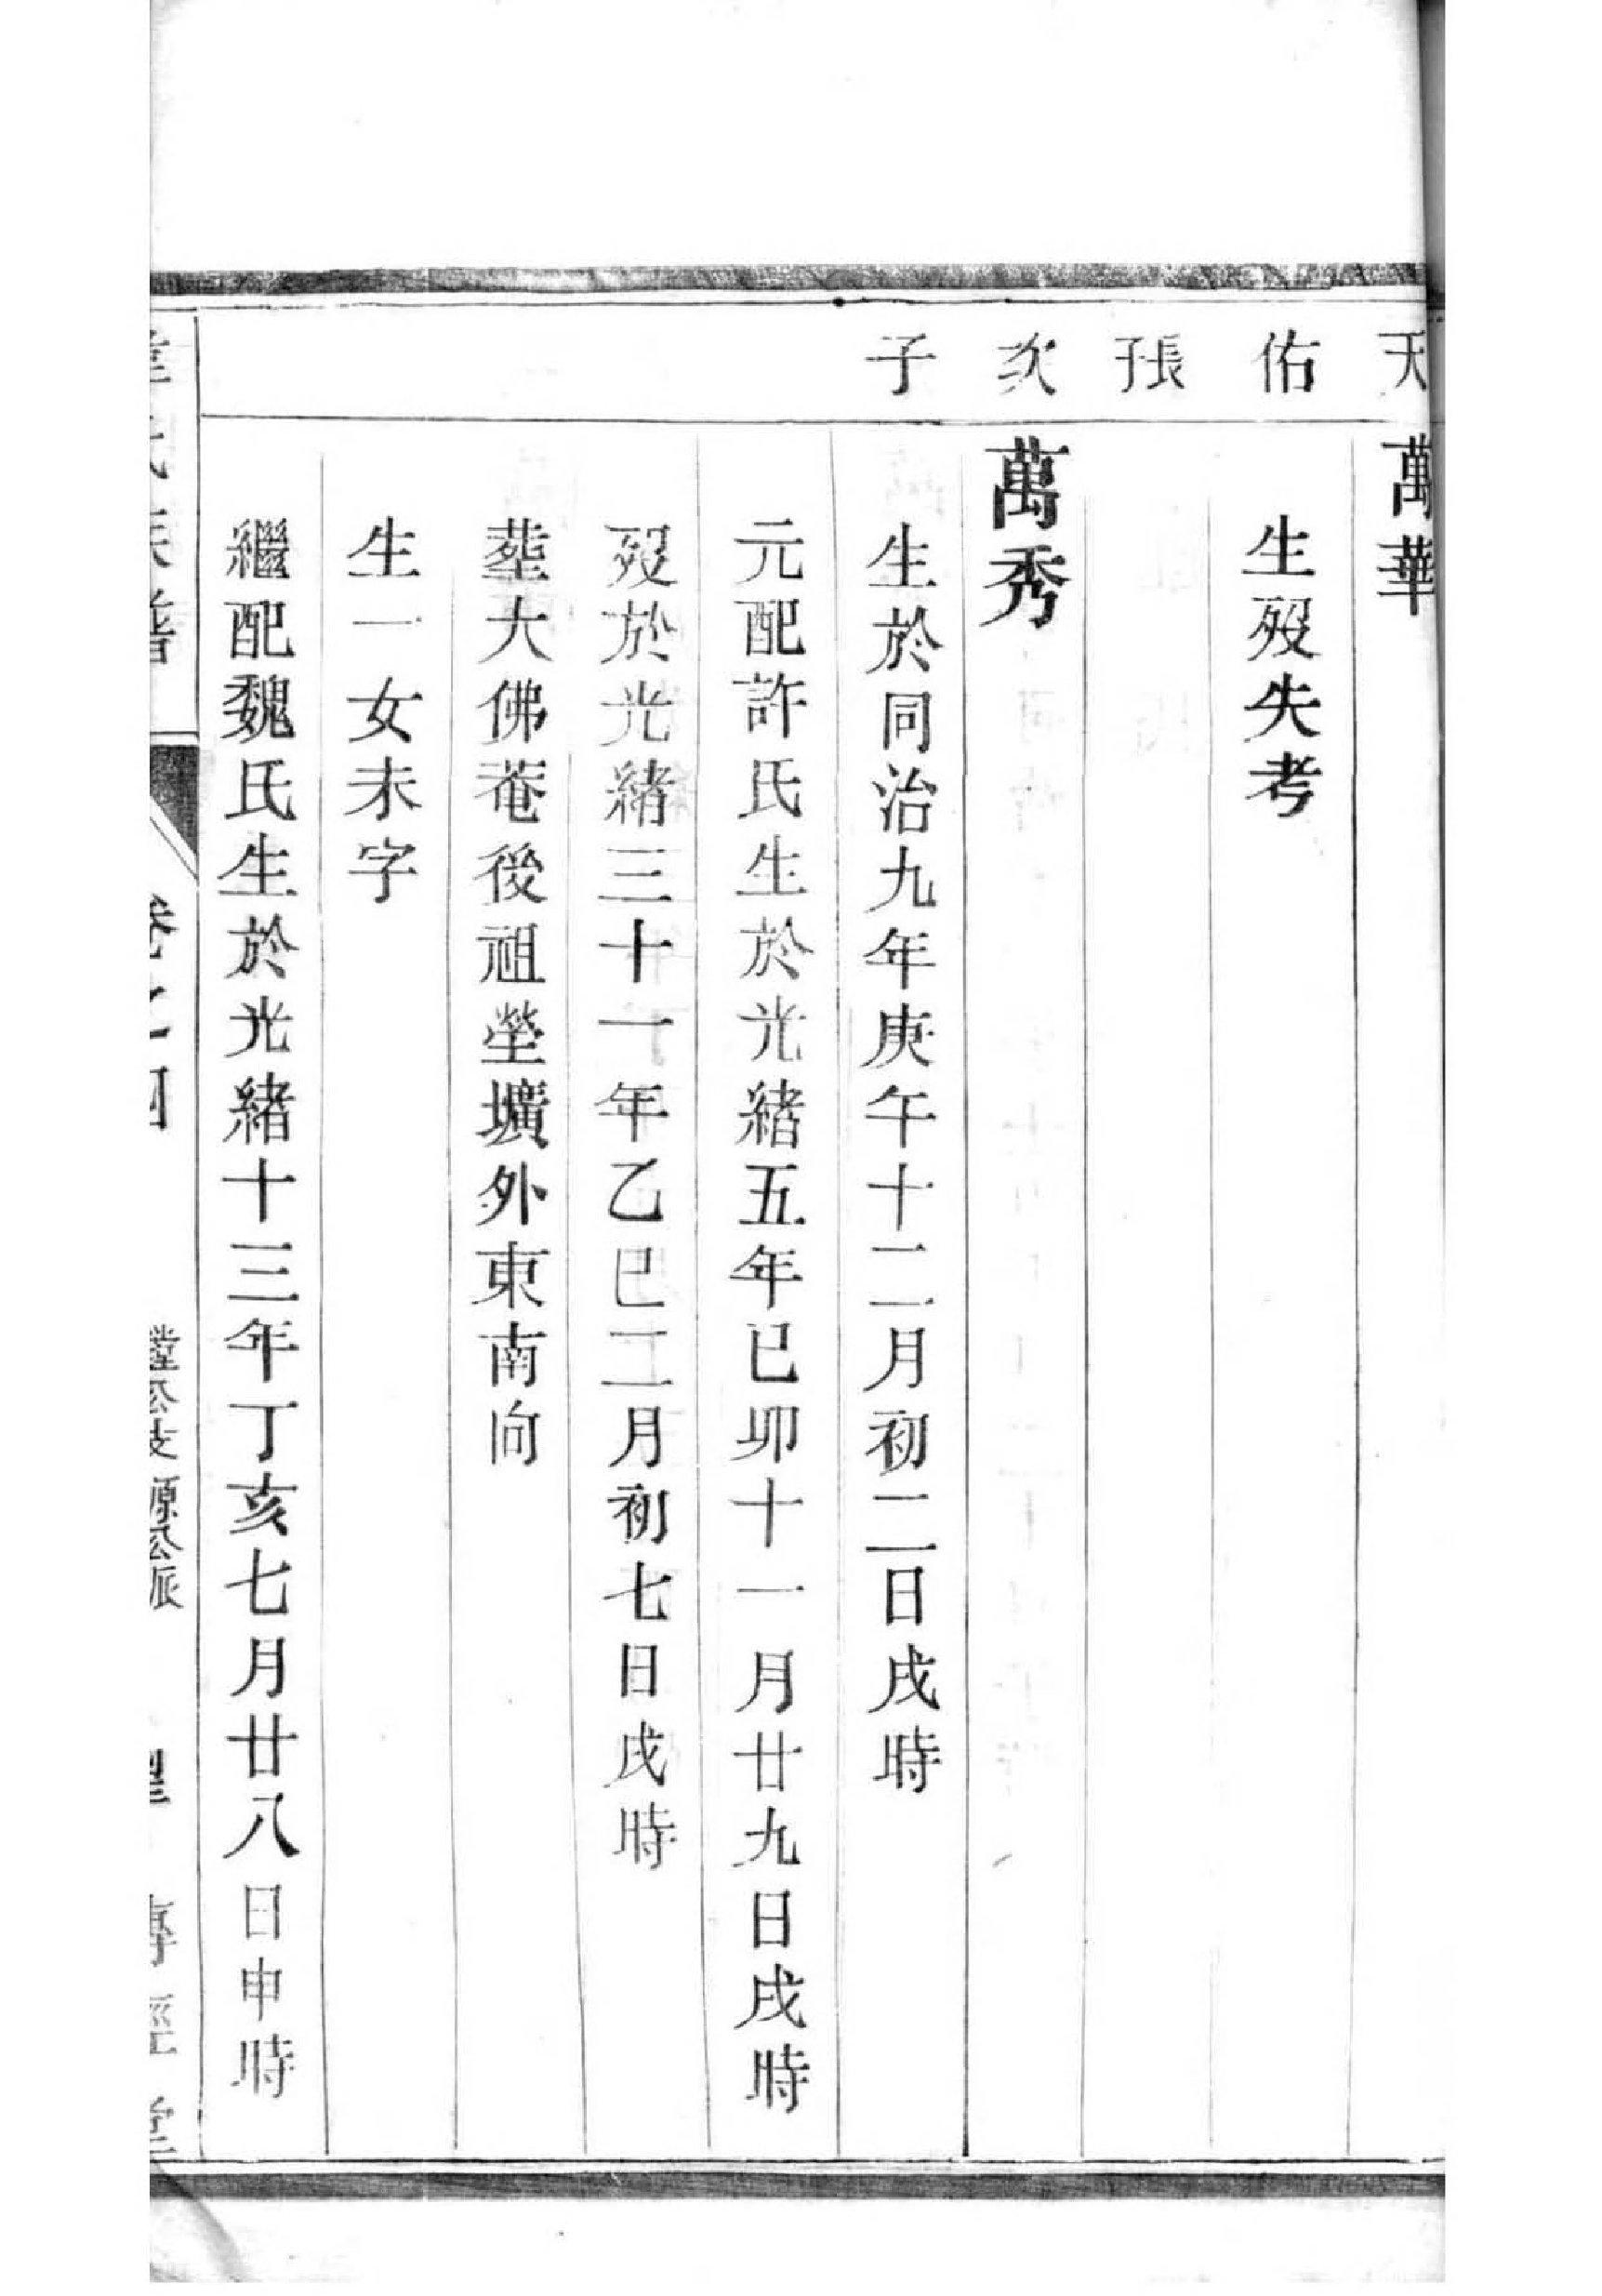 天 萬華
佑 生歿失考
長子
次 萬秀
子 生於同治九年庚午十二月初二日戌時
元配許氏生於光緒五年己卯十一月廿九日戌時
歿於光緒三十一年乙巳二月初七日戌時
葬大佛菴後祖塋壙外東南向
生一女未字
繼配魏氏生於光緒十三年丁亥七月廿八日申時
氏族譜 卷之四 公支源公派 傳經堂